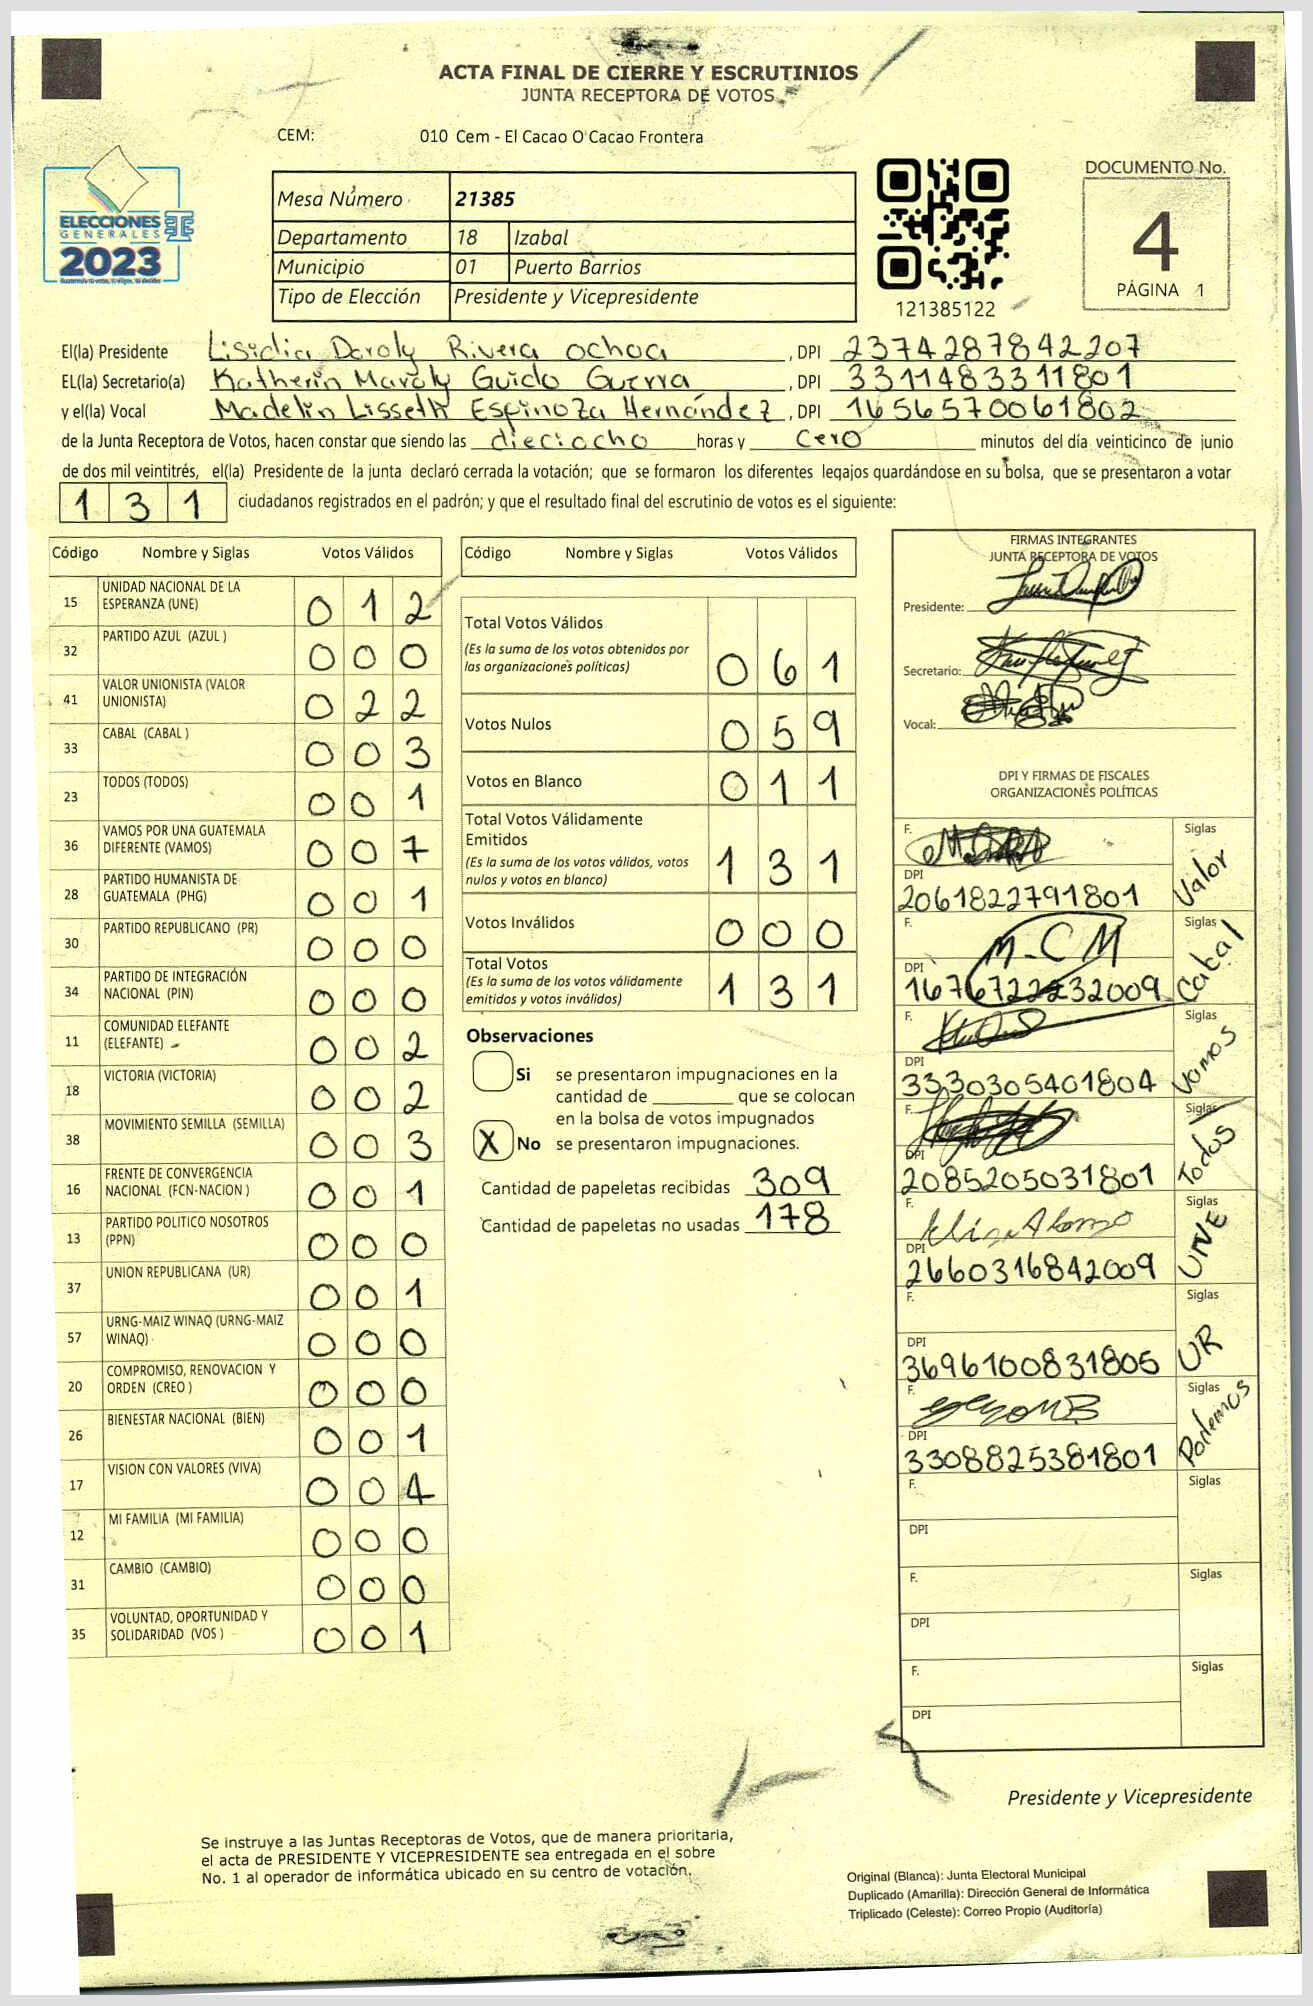 ACTA FINAL DE CIERRE Y ESCRUTINIOS
JUNTA RECEPTORA DE VOTOS
CEM: 010 Cem - El Cacao O Cacao Frontera
ELECCIONES
GENERALES
2023
Mesa Número 21385
Departamento 18 Izabal
Municipio 01 Puerto Barrios
Tipo de Elección Presidente y Vicepresidente
121385122
DOCUMENTO No.
4
PÁGINA 1
El(la) Presidente Lisidia Daroly Rivera Ochoa, DPI 2374287842207
EL(la) Secretario(a) Katherin Maroly Guido Guerra, DPI 3311483311801
y el(la) Vocal Madelin Lisseth Espinoza Hernández, DPI 1656570061802
de la Junta Receptora de Votos, hacen constar que siendo las dieciocho horas y cero minutos del día veinticinco de junio
de dos mil veintitrés, el(la) Presidente de la junta declaró cerrada la votación; que se formaron los diferentes legajos quardándose en su bolsa, que se presentaron a votar
131 ciudadanos registrados en el padrón; y que el resultado final del escrutinio de votos es el siguiente:
Código Nombre y Siglas Votos Válidos
15 UNIDAD NACIONAL DE LA ESPERANZA (UNE) 012
32 PARTIDO AZUL (AZUL ) 000
41 VALOR UNIONISTA (VALOR UNIONISTA) 022
33 CABAL (CABAL ) 003
23 TODOS (TODOS) 001
36 VAMOS POR UNA GUATEMALA DIFERENTE (VAMOS) 007
28 PARTIDO HUMANISTA DE GUATEMALA (PHG) 001
30 PARTIDO REPUBLICANO (PR) 000
34 PARTIDO DE INTEGRACIÓN NACIONAL (PIN) 000
11 COMUNIDAD ELEFANTE (ELEFANTE) 002
18 VICTORIA (VICTORIA) 002
38 MOVIMIENTO SEMILLA (SEMILLA) 003
16 FRENTE DE CONVERGENCIA NACIONAL (FCN-NACION ) 001
13 PARTIDO POLITICO NOSOTROS (PPN) 000
37 UNION REPUBLICANA (UR) 001
57 URNG-MAIZ WINAQ (URNG-MAIZ WINAQ) 000
20 COMPROMISO, RENOVACION Y ORDEN (CREO ) 000
26 BIENESTAR NACIONAL (BIEN) 001
17 VISION CON VALORES (VIVA) 004
12 MI FAMILIA (MI FAMILIA) 000
31 CAMBIO (CAMBIO) 000
35 VOLUNTAD, OPORTUNIDAD Y SOLIDARIDAD (VOS ) 001
Código Nombre y Siglas Votos Válidos
Total Votos Válidos 061
(Es la suma de los votos obtenidos por
las organizaciones políticas)
Votos Nulos 059
Votos en Blanco 011
Total Votos Válidamente
Emitidos 131
(Es la suma de los votos válidos, votos
nulos y votos en blanco)
Votos Inválidos 000
Total Votos 131
(Es la suma de los votos válidamente
emitidos y votos inválidos)
Observaciones
Si se presentaron impugnaciones en la
cantidad de ________ que se colocan
en la bolsa de votos impugnados
X No se presentaron impugnaciones.
Cantidad de papeletas recibidas 309
Cantidad de papeletas no usadas 178
FIRMAS INTEGRANTES
JUNTA RECEPTORA DE VOTOS
Presidente:
Secretario:
Vocal:
DPI Y FIRMAS DE FISCALES
ORGANIZACIONES POLÍTICAS
F. Siglas Valor
DPI 2061822791801
F. M.C M Siglas Cabal
DPI 1676722232009
F. Siglas Vamos
DPI 3330305401804
F. Siglas Todos
DPI 2085205031801
F. Siglas UNE
DPI 2660316842009
F. Siglas UR
DPI 3696100831805
F. Siglas Podemos
DPI 3308825381801
F. Siglas
DPI
F. Siglas
DPI
F. Siglas
DPI
Presidente y Vicepresidente
Se instruye a las Juntas Receptoras de Votos, que de manera prioritaria,
el acta de PRESIDENTE Y VICEPRESIDENTE sea entregada en el sobre
No. 1 al operador de informática ubicado en su centro de votación.
Original (Blanca): Junta Electoral Municipal
Duplicado (Amarilla): Dirección General de Informática
Triplicado (Celeste): Correo Propio (Auditoría)